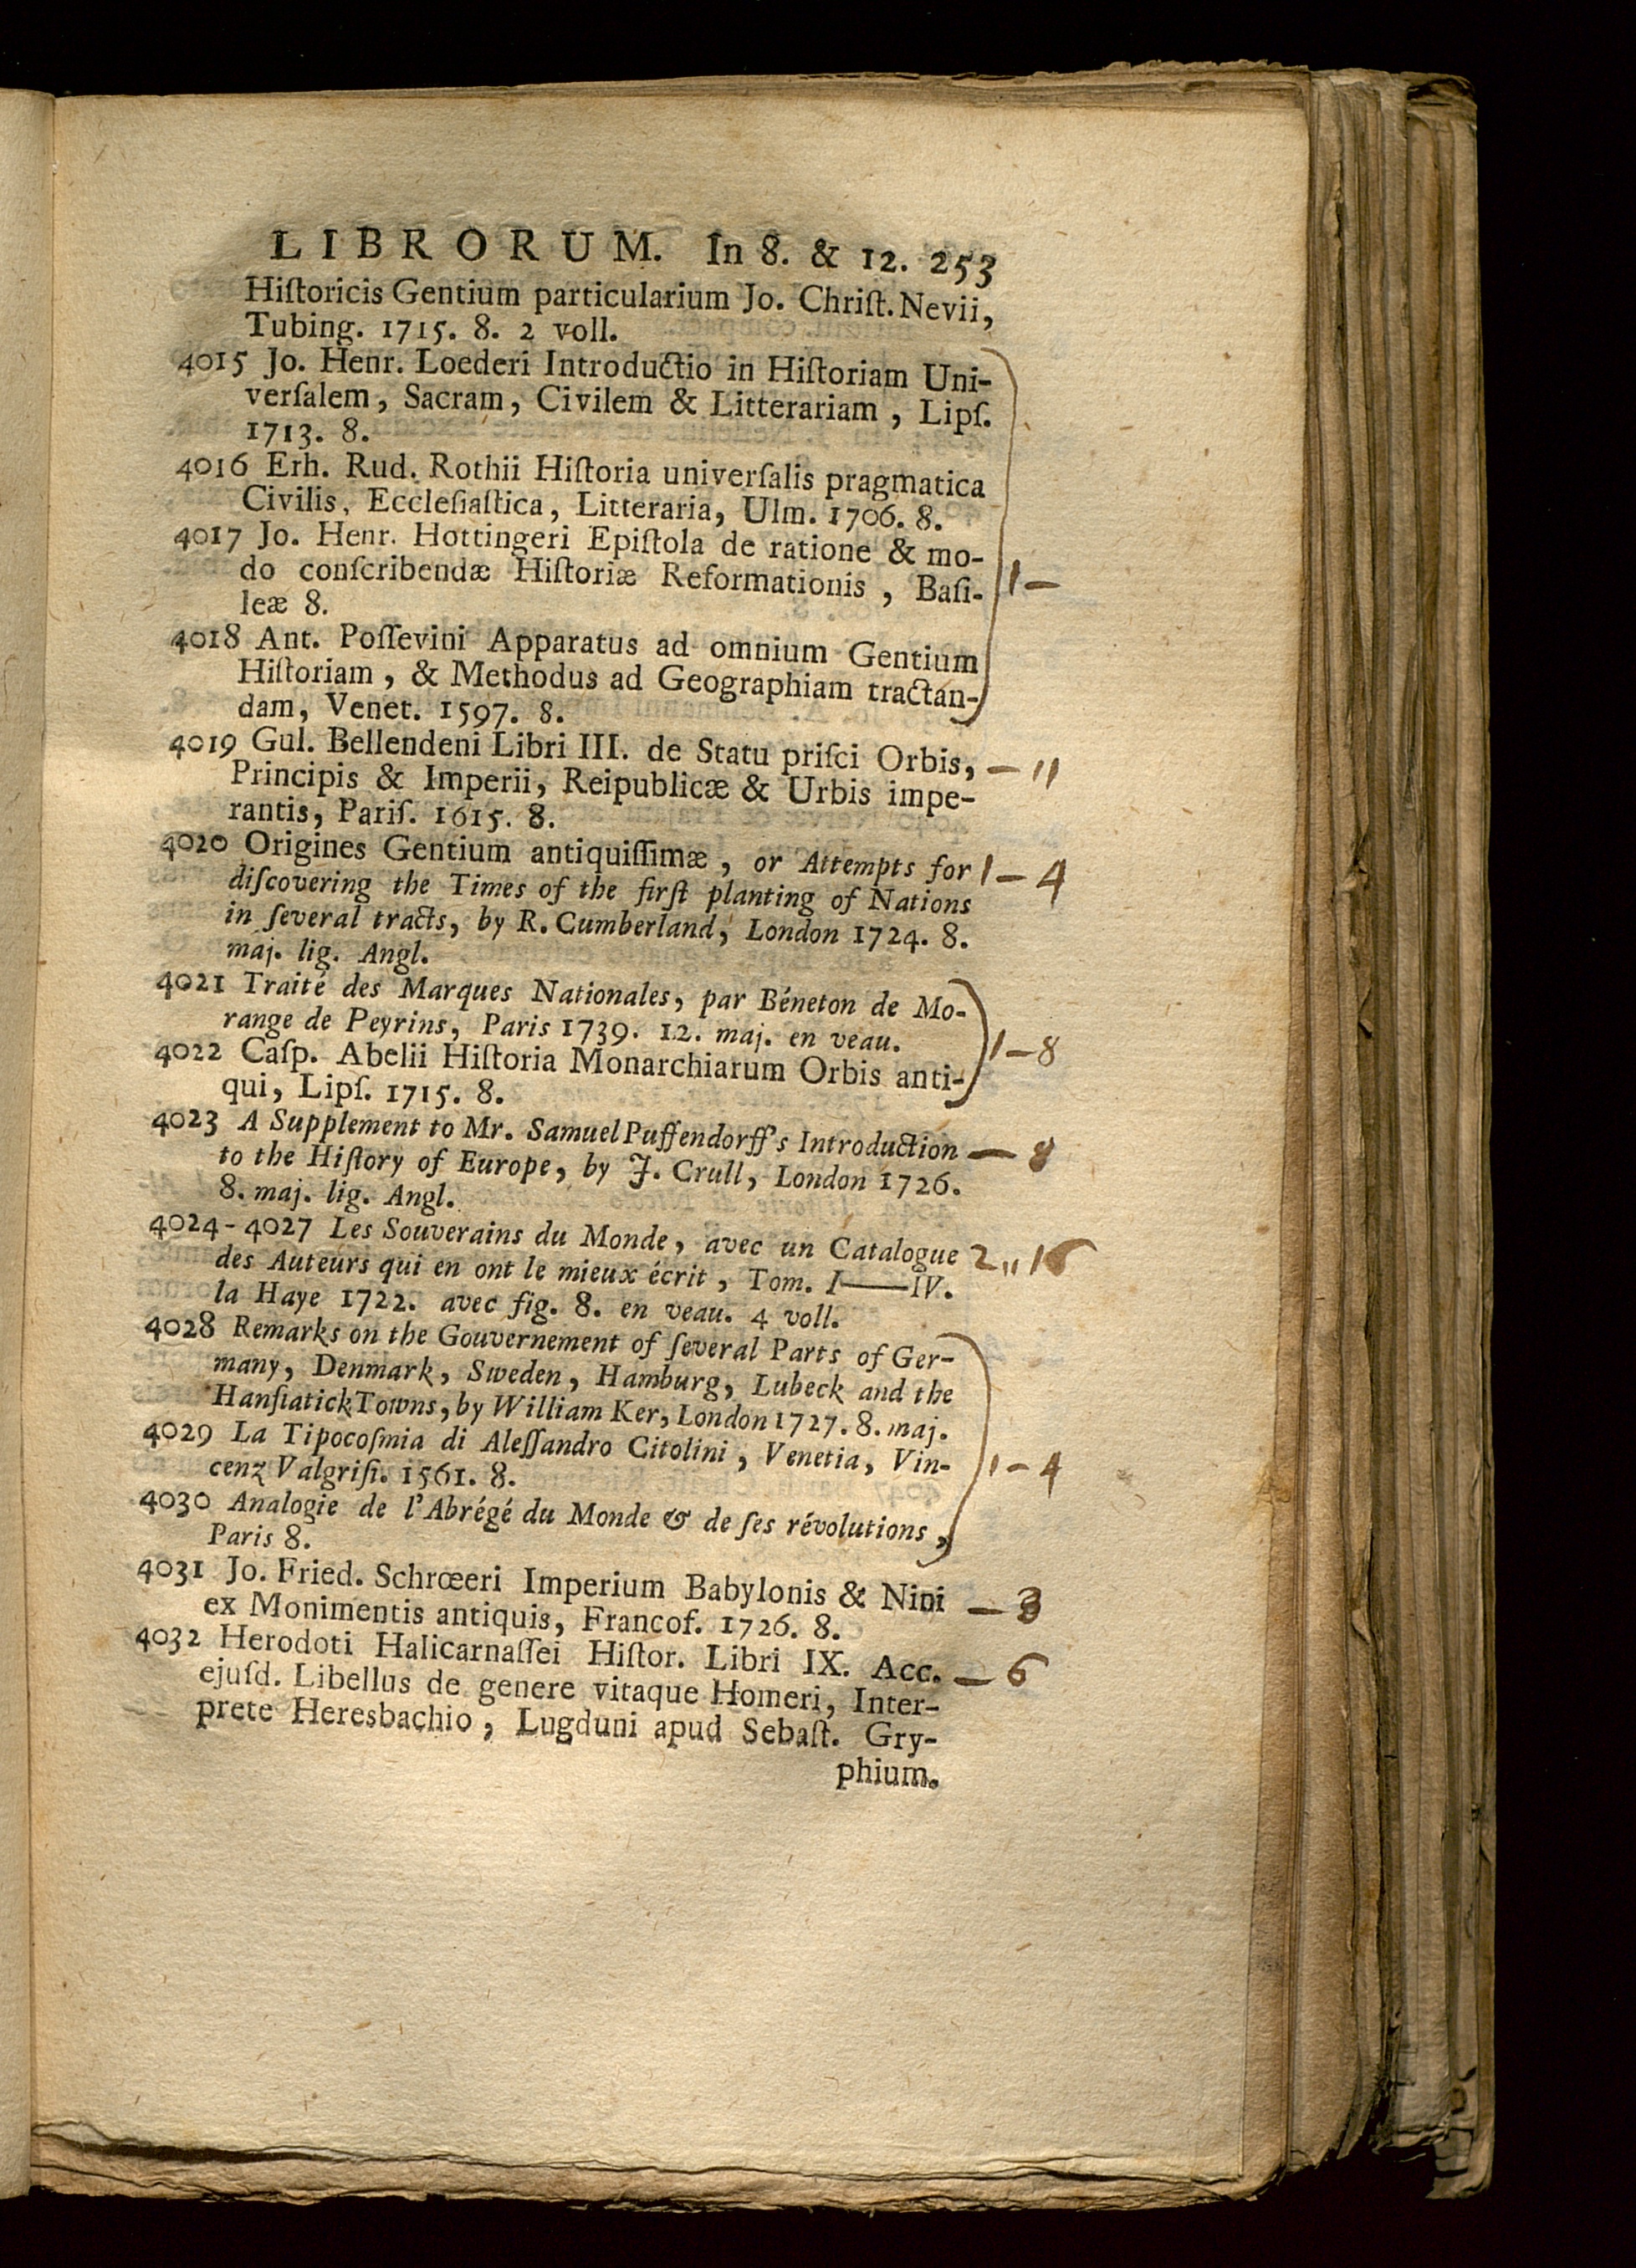 LIBRORUM. In 8. & 12. 253
Hiſtoricis Gentium particularium Jo. Chriſt. Nevii,
Tubing. 1715. 8. 2 voll.
4015 Jo. Henr. Loederi Introductio in Hiſtoriam Uni-
verſalem, Sacram, Civilem & Litterariam, Lipſ.
1713. 8.
4016 Erh. Rud. Rothii Hiſtoria univerſalis pragmatica
Civilis, Eccleſiaſtica, Litteraria, Ulm. 1706. 8.
4017 Jo. Henr. Hottingeri Epiſtola de ratione & mo-
do conſcribendæ Hiſtoriæ Reformationis, Baſi- 1 –
leæ 8.
4018 Ant. Poſſevini Apparatus ad omnium Gentium
Hiſtoriam, & Methodus ad Geographiam tractan-
dam, Venet. 1597. 8.
4019 Gul. Bellendeni Libri III. de Statu priſci Orbis, – 11
Principis & Imperii, Reipublicæ & Urbis impe-
rantis, Pariſ. 1615. 8.
4020 Origines Gentium antiquiſſimæ, or Attempts for 1 – 4
diſcovering the Times of the firſt planting of Nations
in ſeveral tracts, by R. Cumberland, London 1724. 8.
maj. lig. Angl.
4021 Traité des Marques Nationales, par Béneton de Mo-
range de Peyrins, Paris 1739. 12. maj. en veau. 1 – 8
4022 Caſp. Abelii Hiſtoria Monarchiarum Orbis anti-
qui, Lipſ. 1715. 8.
4023 A Supplement to Mr. Samuel Puffendorff's Introduction – 8
to the Hiſtory of Europe, by J. Crull, London 1726.
8. maj. lig. Angl.
4024-4027 Les Souverains du Monde, avec un Catalogue 2 „ 16
des Auteurs qui en ont le mieux écrit, Tom. I——IV.
la Haye 1722. avec fig. 8. en veau. 4 voll.
4028 Remarks on the Gouvernement of ſeveral Parts of Ger-
many, Denmark, Sweden, Hamburg, Lubeck and the
Hanſiatick Towns, by William Ker, London 1727. 8. maj.
4029 La Tipocoſmia di Aleſſandro Citolini, Venetia, Vin- 1 – 4
cenz Valgriſi. 1561. 8.
4030 Analogie de l'Abrégé du Monde & de ſes révolutions,
Paris 8.
4031 Jo. Fried. Schrœeri Imperium Babylonis & Nini – 3
ex Monimentis antiquis, Francof. 1726. 8.
4032 Herodoti Halicarnaſſei Hiſtor. Libri IX. Acc. – 6
ejuſd. Libellus de genere vitaque Homeri, Inter-
prete Heresbachio, Lugduni apud Sebaſt. Gry-
phium.